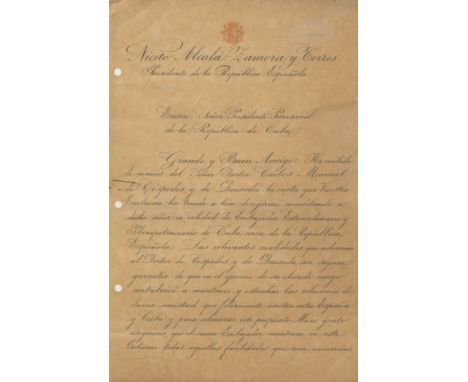 Niceto Alcalá-Zamora y Torres
Presidente de la República Española
Excmo. Señor Presidente Provisional
de la República de Cuba
Grande y Buen Amigo: He recibido
de manos del Señor Doctor Carlos Manuel
de Céspedes y de Quesada la carta que Vuestra
Excelencia ha tenido a bien dirigirme acreditando a
dicho señor en calidad de Embajador Extraordinario y
Plenipotenciario de Cuba cerca de la República
Española. Las relevantes cualidades que adornan
al Doctor de Céspedes y de Quesada, son segura
garantía de que en el ejercicio de su elevado cargo
contribuirá a mantener y estrechar las relaciones de
buena amistad que felizmente existen entre España
y Cuba y para alcanzar este propósito Me es grato
aseguraros que el nuevo Embajador encontrará en este
Gobierno todas aquellas facilidades que sean necesarias